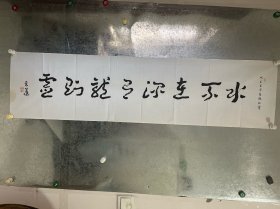 水不在深有龍則靈